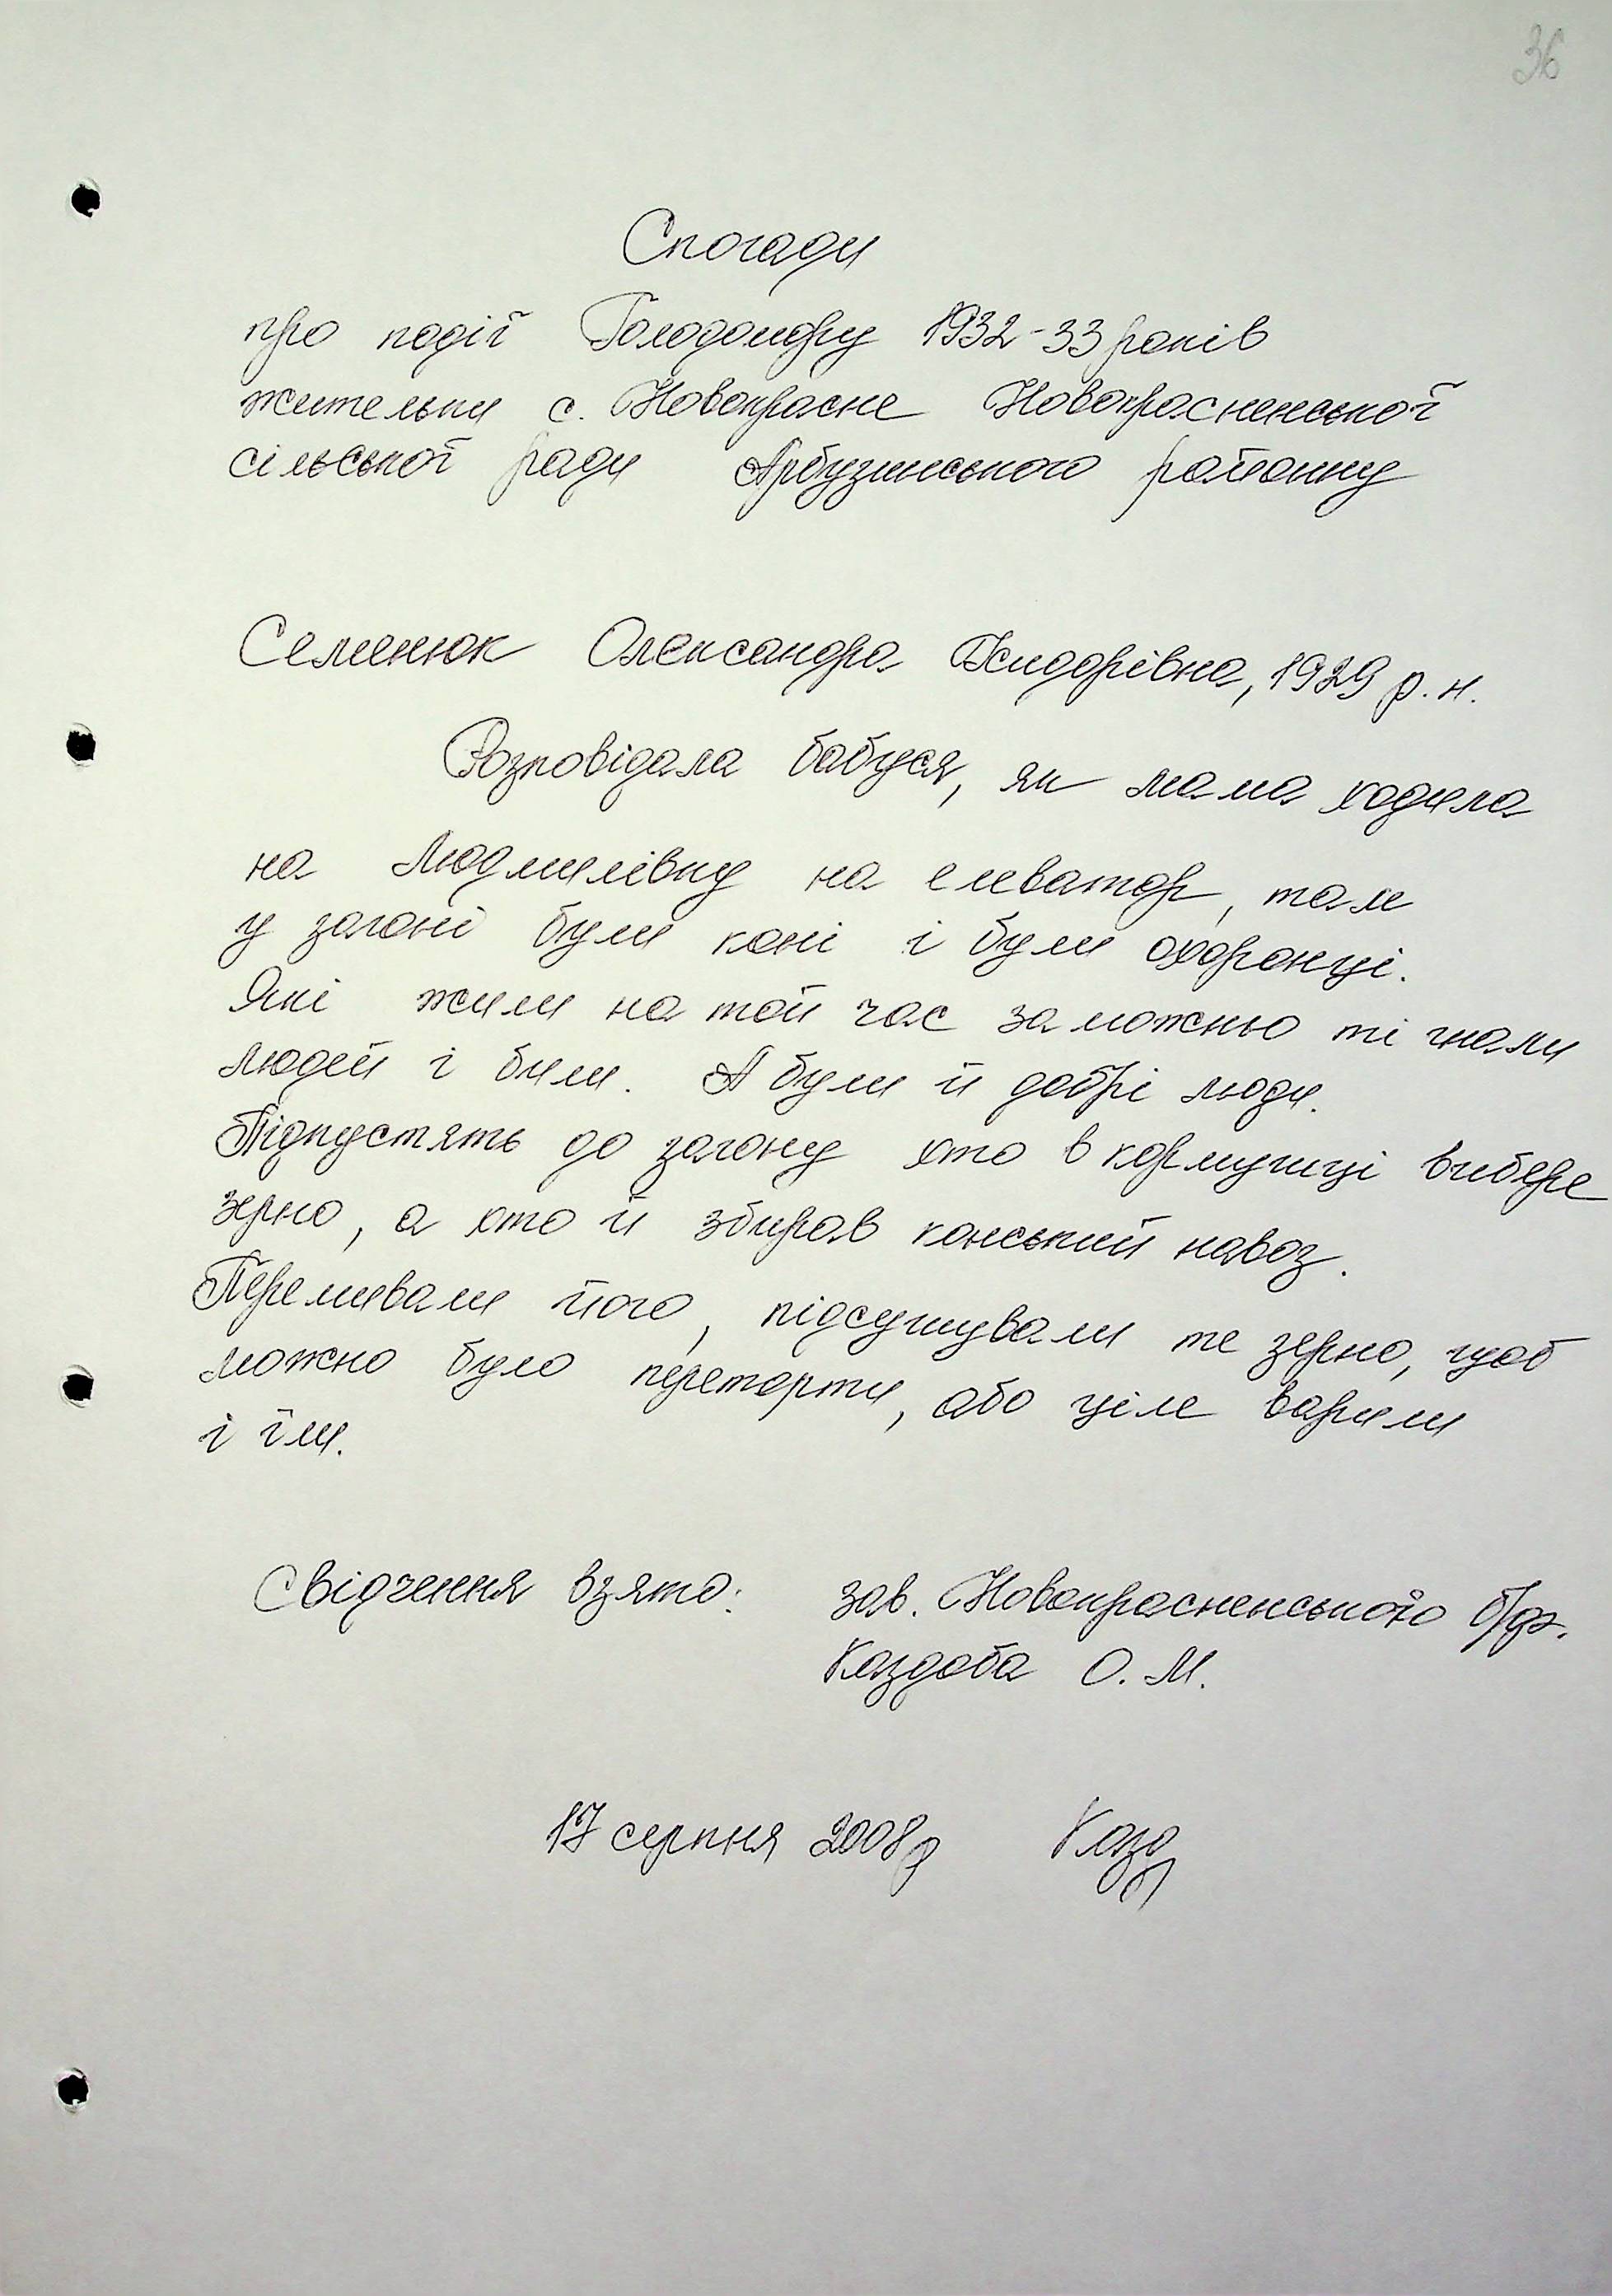 36
Спогади
про події Голодомору 1932-33 років
жительки с. Новокрасне Новокрасненської
сільської ради Арбузинського району
Семенюк Олександра Сидорівна, 1929 р.н.
Розповідала бабуся, як мама ходила
на Людмилівку на елеватор, там
у загоні були коні і були охоронці.
Які жили на той час заможньо ті гнали
людей і били. А були й добрі люди.
Підпустять до загону хто в кормушці вибере
зерно, а хто й збирав конський навоз.
Перемивали його, підсушували те зерно, щоб
можно було перетерти, або ціле варили
і їли.
Свідчення взято: зав. Новокрасненського б/ф.
О. М.
17 серпня 2008р